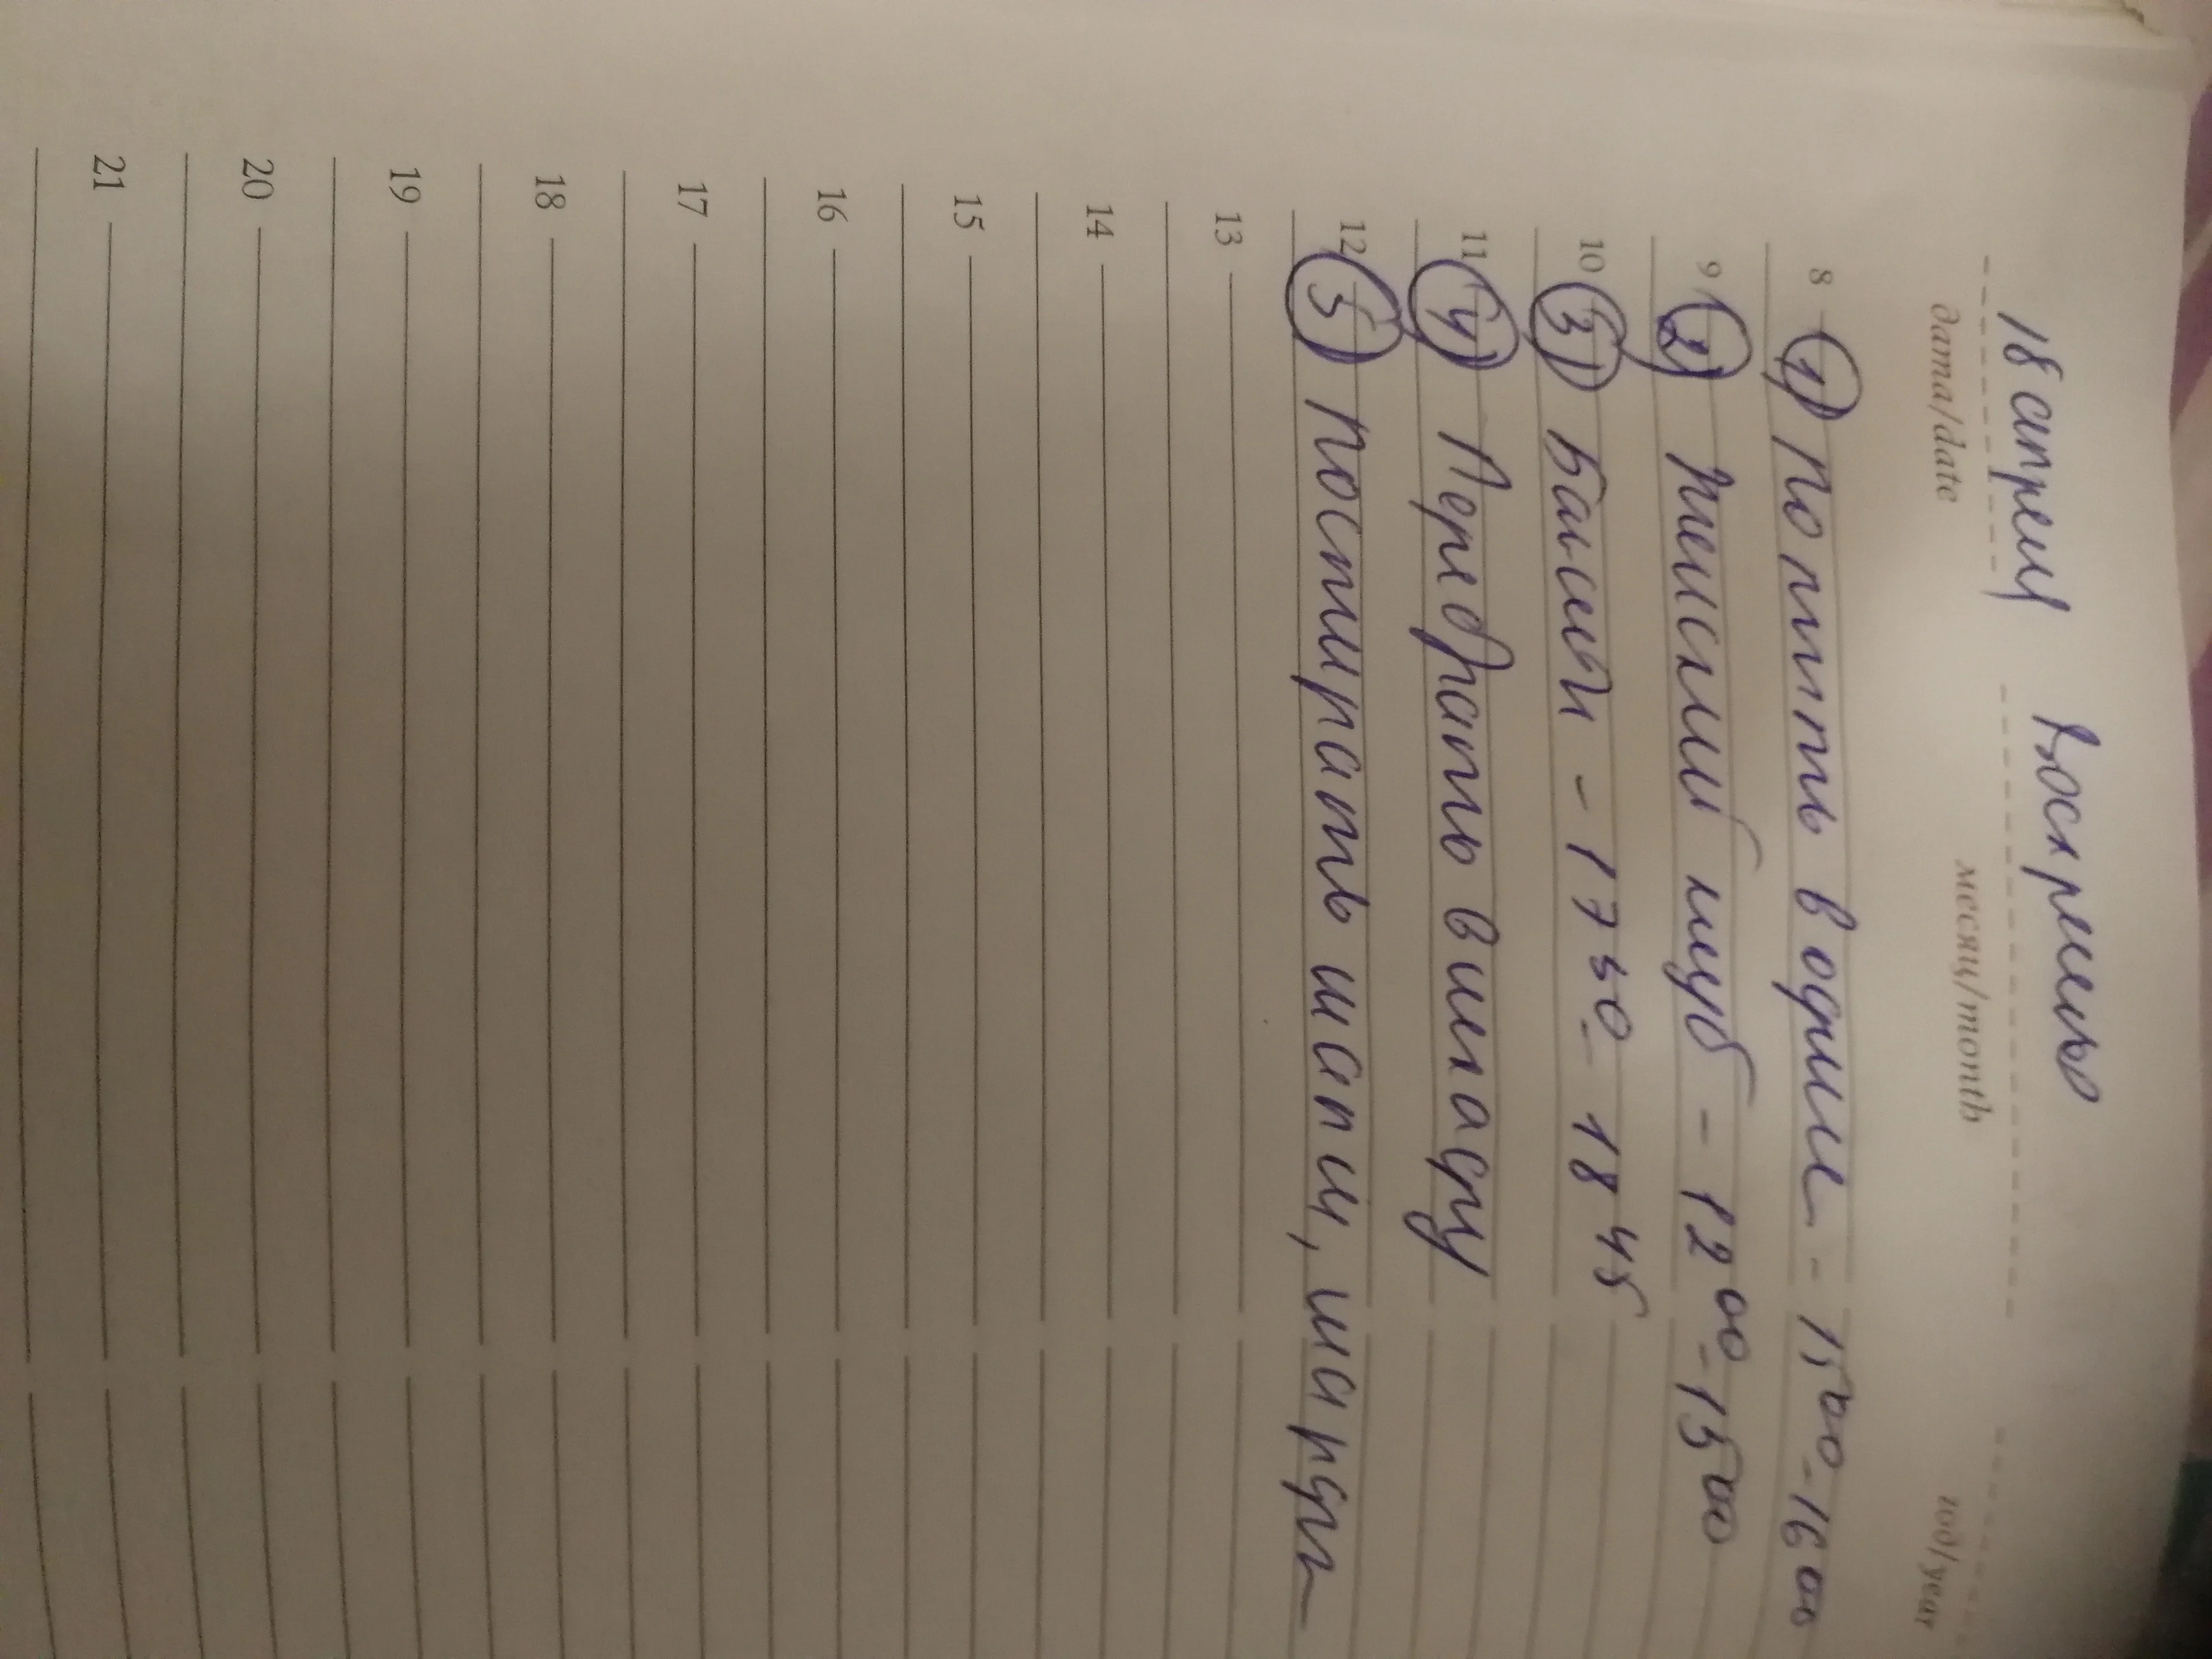 18 апреля Воскрешье
дата/date месяц/month год/year
8 1) Попить водички - 15 00 - 16 00
9 2) Женский клуб - 12 00 - 15 00
10 3) Бассейн - 17 30 - 18 45
11 4) Перебрать
12 5) Постирать шапки,
13
14
15
16
17
18
19
20
21